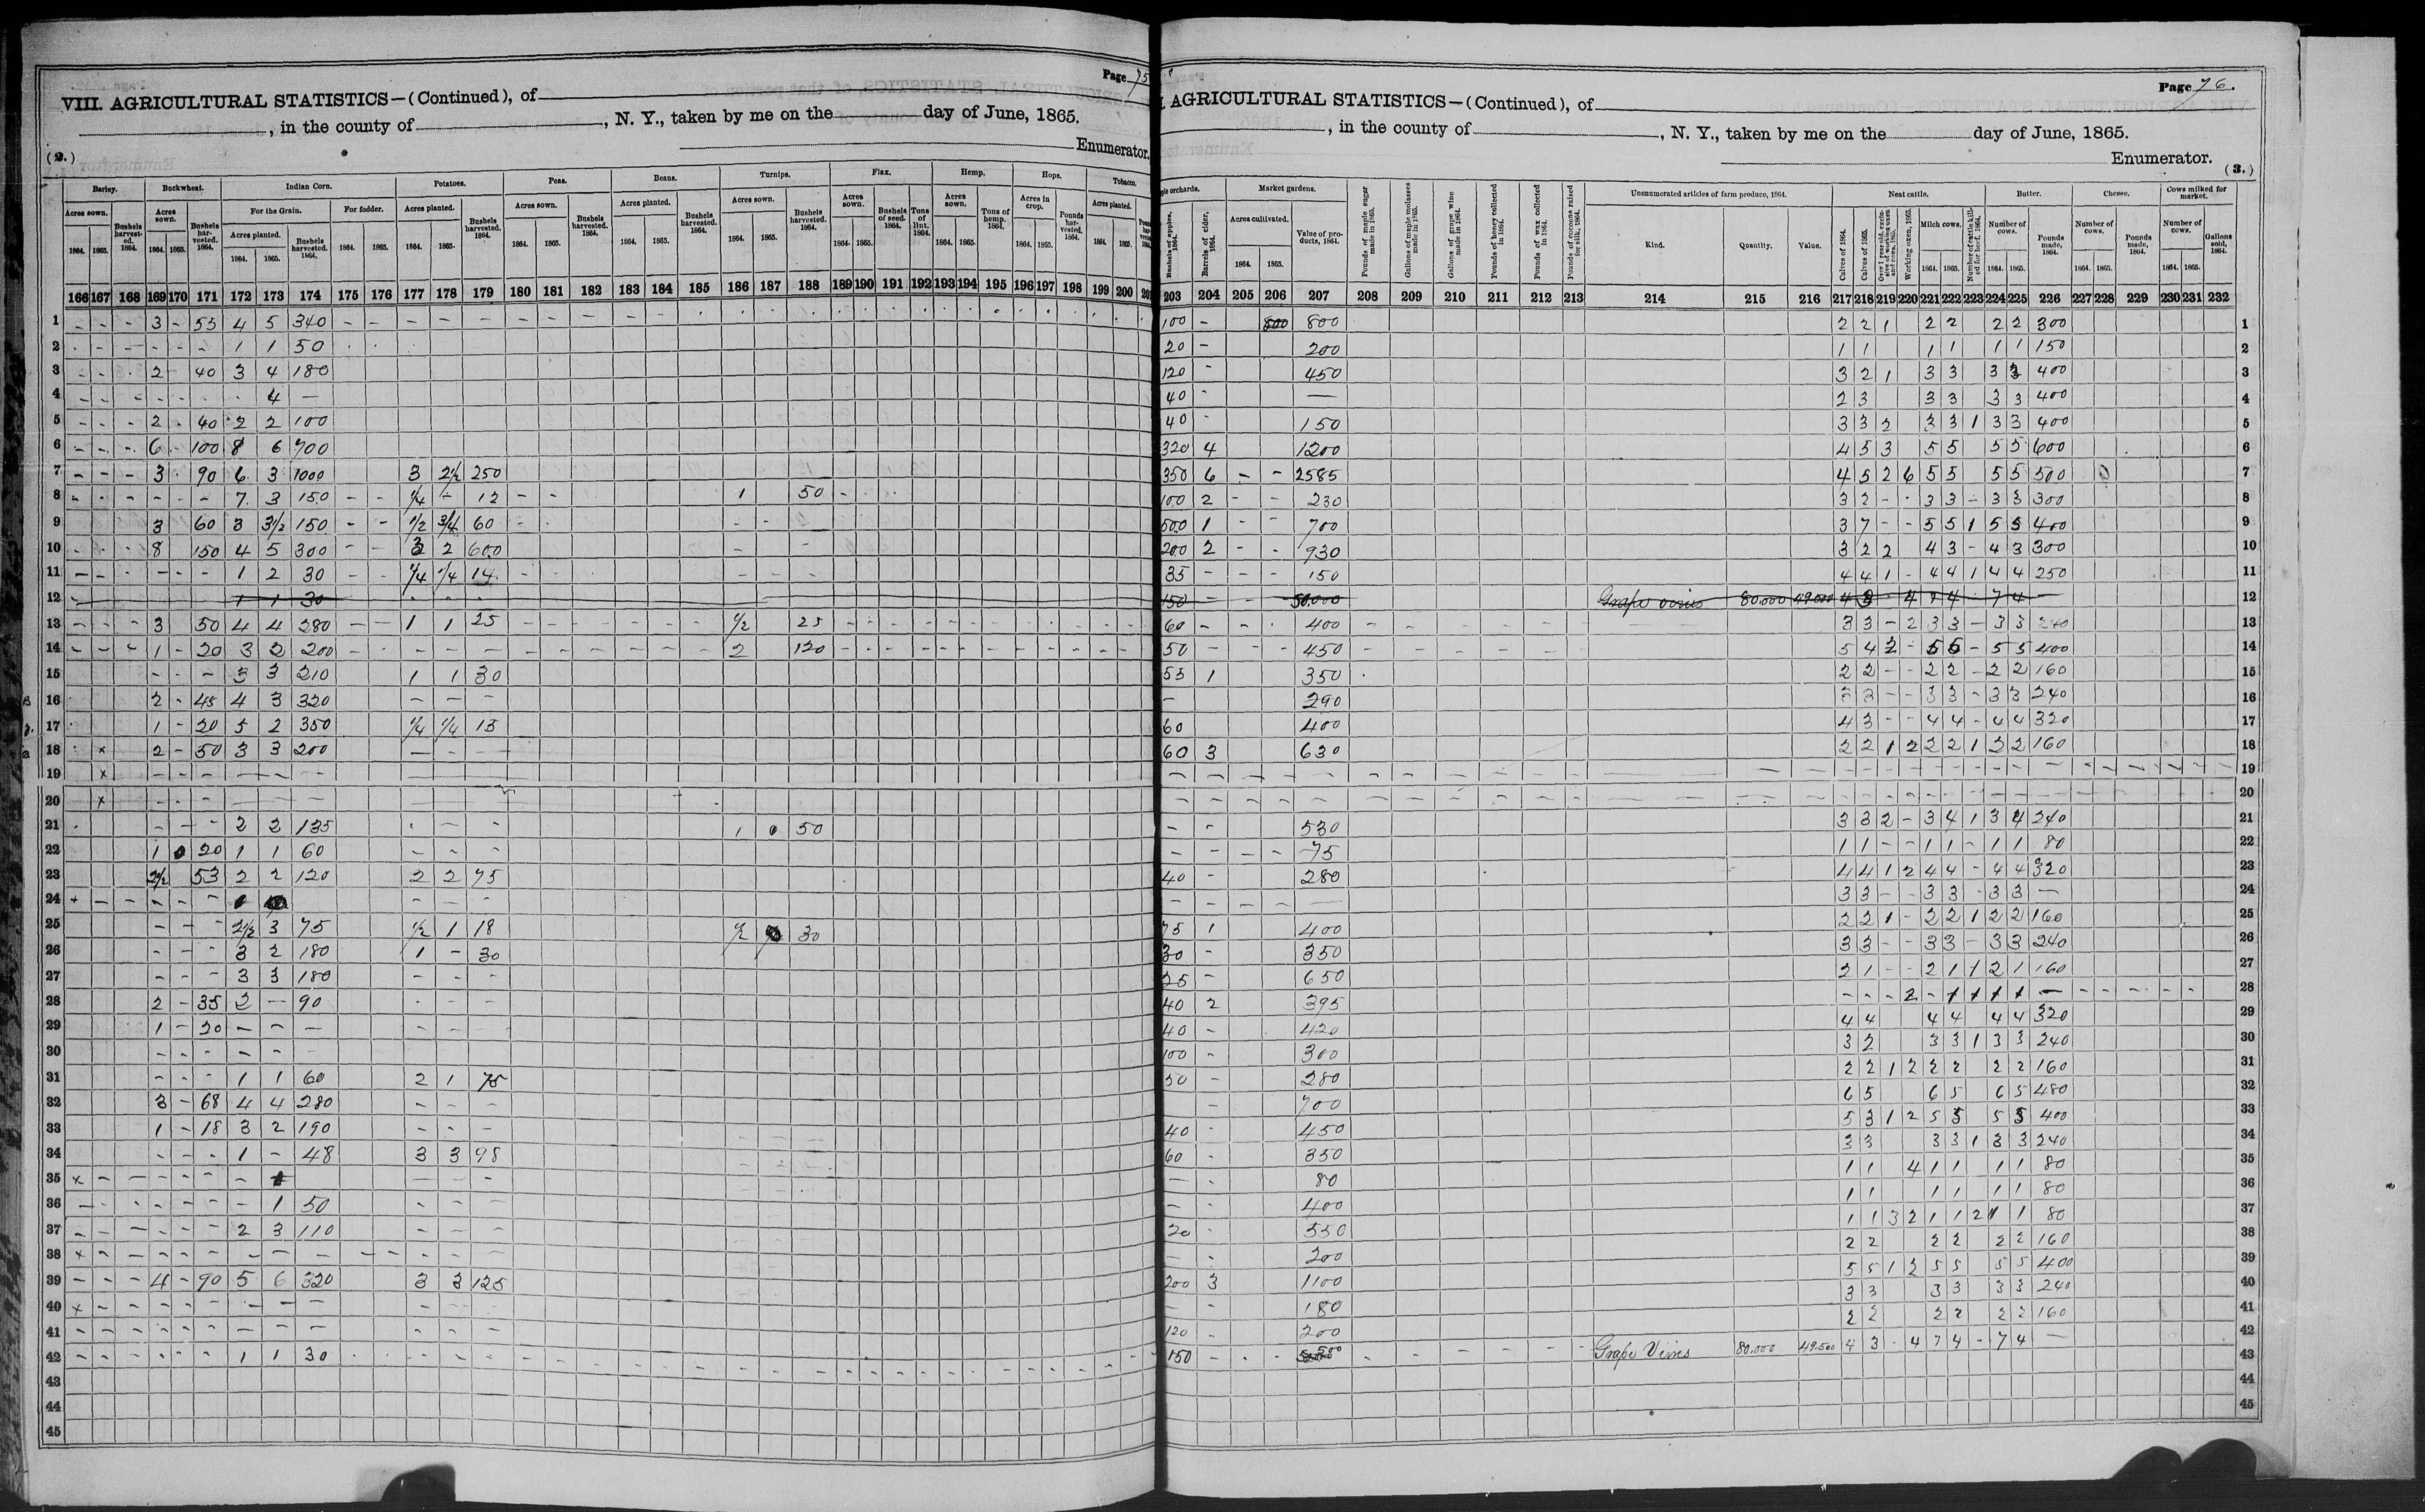 Page 75
VIII. AGRICULTURAL STATISTICS—(Continued), of
, in the county of , N. Y., taken by me on the day of June, 1865.
Enumerator.
(2.)
Barley. Buckwheat. Indian Corn. Potatoes. Peas. Beans. Turnips. Flax. Hemp. Hops. Tobacco.
Acres sown. Bushels harvested. 1864. Acres sown. Bushels harvested. 1864. For the Grain. For fodder. Acres planted. Bushels harvested. 1864. Acres sown. Bushels harvested. 1864. Acres planted. Bushels harvested. 1864. Acres sown. Bushels harvested. 1864. Acres sown. Bushels of seed. 1864. Tons of lint. 1864. Acres sown. Tons of hemp. 1864. Acres in crop. Pounds harvested. 1864. Acres planted.
Acres planted. Bushels harvested. 1864.
166 167 168 169 170 171 172 173 174 175 176 177 178 179 180 181 182 183 184 185 186 187 188 189 190 191 192 193 194 195 196 197 198 199 200
1 - - - 3 - 55 4 5 340
2 1 1 50
3 2 40 3 4 180
4 4 —
5 2 40 2 2 100
6 6 100 8 6 700
7 3 90 6 3 1000 3 2½ 250
8 7 3 150 ¼ - 12 1 50
9 3 60 3 3½ 150 ½ 3/4 60
10 8 150 4 5 300 3 2 600
11 1 2 30 ¼ ¼ 14
12 1 1 30
13 3 50 4 4 280 1 1 25 ½ 25
14 1 - 20 3 2 200 2 120
15 3 3 210 1 1 30
16 2 - 45 4 3 320
17 1 - 20 5 2 350 ¼ ¼ 15
18 x 2 - 50 3 3 200
19 x
20 x
21 2 2 135 1 0 50
22 1 0 20 1 1 60
23 2½ 53 2 2 120 2 2 75
24
25 2½ 3 75 ½ 1 18 ½ 30
26 3 2 180 1 - 30
27 3 3 180
28 2 - 35 2 - 90
29 1 - 20
30
31 1 1 60 2 1 75
32 3 - 68 4 4 280
33 1 - 18 3 2 190
34 1 - 48 3 3 98
35 x
36 1 50
37 2 3 110
38 x
39 4 - 90 5 6 320 3 3 125
40 x
41
42 1 1 30
43
44
45
Page 76.
AGRICULTURAL STATISTICS—(Continued), of
, in the county of , N. Y., taken by me on the day of June, 1865.
Enumerator.
(3.)
ple orchards. Market gardens. Pounds of maple sugar made in 1865. Gallons of maple molasses made in 1865. Gallons of grape wine made in 1864. Pounds of honey collected in 1864. Pounds of wax collected in 1864. Pounds of cocoons raised for silk, 1864. Unenumerated articles of farm produce, 1864. Neat cattle. Butter. Cheese. Cows milked for market.
Bushels of apples, 1864. Barrels of cider, 1864. Acres cultivated. Value of products, 1864. Kind. Quantity. Value. Calves of 1864. Calves of 1865. Working oxen, 1865. Milch cows. Number of cattle killed for beef, 1864. Number of cows. Pounds made, 1864. Number of cows. Pounds made, 1864. Number of cows. Gallons sold, 1864.
203 204 205 206 207 208 209 210 211 212 213 214 215 216 217 218 219 220 221 222 223 224 225 226 227 228 229 230 231 232
100 - 800 800 2 2 1 2 2 2 2 300 1
20 - 200 1 1 1 1 1 1 150 2
120 - 450 3 2 1 3 3 3 3 400 3
40 - — 2 3 3 3 3 3 400 4
40 - 150 3 3 2 3 3 1 3 3 400 5
320 4 1200 4 5 3 5 5 5 5 600 6
350 6 - - 2585 4 5 2 6 5 5 5 5 500 7
100 2 - - 230 3 2 - - 3 3 - 3 3 300 8
500 1 - - 700 3 7 - - 5 5 1 5 5 400 9
200 2 - - 930 3 2 2 4 3 - 4 3 300 10
35 - - - 150 4 4 1 - 4 4 1 4 4 250 11
150 50.000 Grape vines 80.000 49.000 4 3 - 4 7 4 7 4 12
60 - 400 3 3 - 2 3 3 - 3 3 240 13
50 - 450 5 4 2 - 5 5 - 5 5 400 14
55 1 350 2 2 - - 2 2 - 2 2 160 15
- 290 3 3 - - 3 3 - 3 3 240 16
60 400 4 3 - - 4 4 - 4 4 320 17
60 3 630 2 2 1 2 2 2 1 2 2 160 18
19
20
- - 530 3 3 2 - 3 4 1 3 4 240 21
- - - - 75 1 1 - - 1 1 - 1 1 80 22
40 - 280 4 4 1 2 4 4 - 4 4 320 23
3 3 - - 3 3 - 3 3 — 24
75 1 400 2 2 1 - 2 2 1 2 2 160 25
30 - 350 3 3 - - 3 3 - 3 3 240 26
25 - 650 2 1 - - 2 1 1 2 1 160 27
40 2 395 - - - 2 - 1 1 1 1 — 28
40 - 420 4 4 4 4 4 4 320 29
100 - 300 3 2 3 3 1 3 3 240 30
50 - 280 2 2 1 2 2 2 2 2 160 31
- 700 6 5 6 5 6 5 480 32
40 - 450 5 3 1 2 5 5 5 5 400 33
60 - 350 3 3 3 3 1 3 3 240 34
- - 80 1 1 4 1 1 1 1 80 35
- - 400 1 1 1 1 1 1 80 36
20 - 550 1 1 3 2 1 1 2 1 1 80 37
- - 200 2 2 2 2 2 2 160 38
200 3 1100 5 5 1 2 5 5 5 5 400 39
- - 180 3 3 3 3 3 3 240 40
120 - 200 2 2 2 2 2 2 160 41
150 - - - 500 Grape Vines 80.000 49.500 4 3 - 4 7 4 - 7 4 — 42
43
44
45